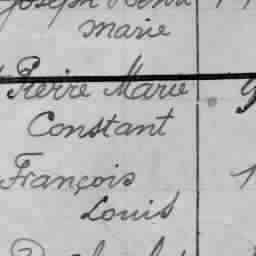 Joseph
Marie
Pierre Marie
Constant
François
Louis